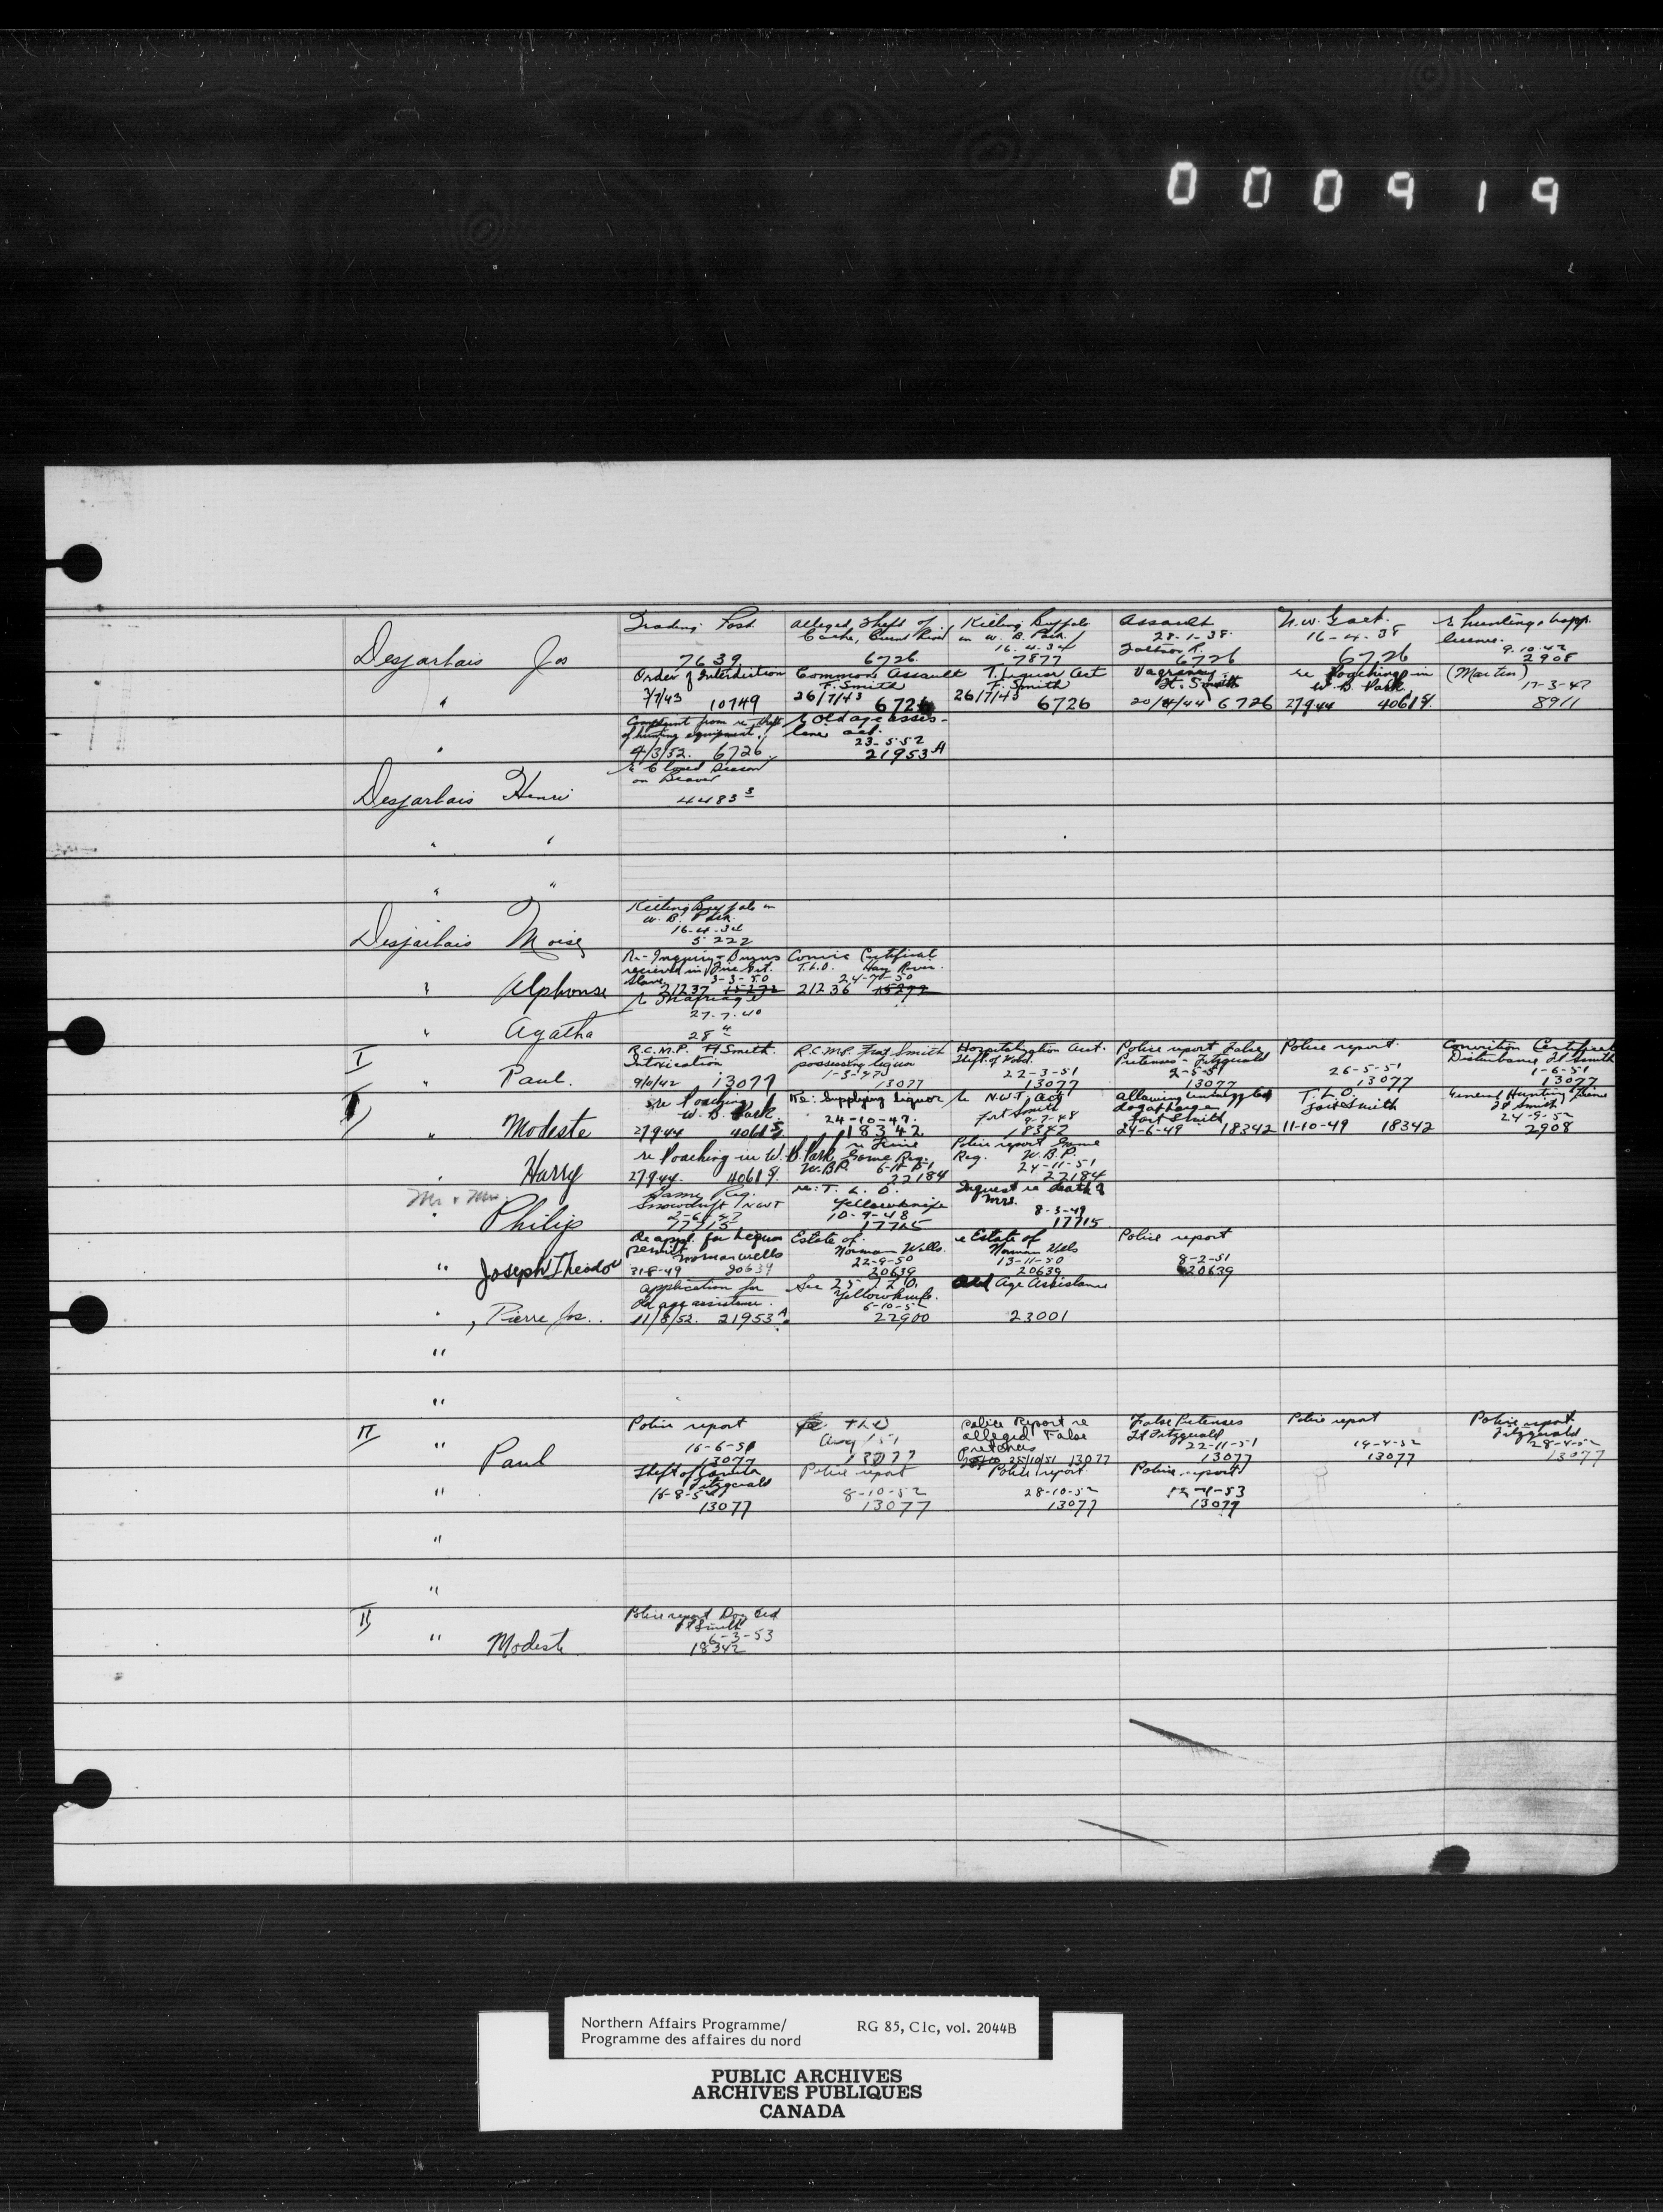 000919
Desjarlais Jos
Trading Post
7639
Alleged Theft of
Cache, Burnt River
6726
Killing Buffalo
in W. B. Park
16-4-34
7877
Assault
28-1-38
6726
N.W. Game Act.
16-4-38
6726
re hunting & trapp.
license.
9-10-42
2908
"
Order of Interdiction
7/7/43 10749
Common Assault
F. Smith
26/7/43 6726
T. Liquor Act
F. Smith
26/7/43 6726
Vagrancy
Ft. Smith
20/4/44 6726
re Poaching in
W. B. Park
27944 40618
(Marten)
17-3-47
8911
"
Complaint from re theft
of hunting equipment.
4/3/52. 6726
re Old age assis-
tance act.
23-5-52
21953 A
Desjarlais Henri
re Closed Season
on Beaver
4483 3
" "
" "
Desjarlais Moise
Killing Buffalo in
W. B. Park
16-4-34
5222
" Alphonse
Re- Inquiry - Burns
recieved in Fire Grt.
Slave 3-3-50
21237 15272
Convic Certificat
T.L.O. Hay River.
24-7-50
21236 15272
" Agatha
re Marriage
27-7-40
28 4
I
" Paul.
R.C.M.P. Ft Smith.
Intoxication
9/0/42 13077
R.C.M.P. Fort Smith
possessing liquor
1-3-47
13077
Hospitalization Acct.
Theft of Food.
22-3-51
13077
Police report False
Pretenses - Fitzgerald
2-5-51
13077
Police report.
26-5-51
13077
Conviction Certificat
Disturbance Ft Smith
1-6-51
13077
I
" Modeste
re Poaching
W. B. Park
27944 40618
Re: Supplying liquor
24-10-47.
18342
re N.W.T. Act
Fort Smith
9-7-48
18342
allowing unmuzzled
dog at large
Fort Smith
24-6-49 18342
T.L.O.
Fort Smith
11-10-49 18342
General Hunting License
Ft Smith
24-9-52
2908
" Harry
re Poaching in W. B. Park
27944. 40618
re Fine
Game Reg.
W.B.P. 6-11-51
22184
Police report Game
Reg. W.B.P.
24-11-51
22184
Mr & Mrs.
" Philip
Game Reg.
Snowdrift NWT
2-6-47
17715
re: T. L. O.
Yellowknife
10-9-48
17715
Inquest re death of
Mrs.
8-3-49
17715
" Joseph Theodor
Re appl. for Liquor
permit Norman Wells
31-8-49 20639
Estate of.
Norman Wells.
22-9-50
20639
re Estate of
Norman Wells
13-11-50
20639
Police report
8-2-51
20639
" Pierre Jos..
application for
old age assistance.
11/8/52. 21953 A
Sec 25- T L O.
Yellowknife.
6-10-52
22900
Old Age Assistance
23001
"
"
II
" Paul
Police report
16-6-51
13077
TLO
Aug /51
13077
Police Report re
alleged False
pretenses
28/10/51 13077
False Pretenses
Ft Fitzgerald
22-11-51
13077
Police report
14-4-52
13077
Police report
Fitzgerald
28-4-52
13077
"
Theft of
Fitzgerald
16-8-52
13077
Police report
8-10-52
13077
Police report.
28-10-52
13077
Police report
13077
"
"
II
" Modeste
Police report Dog Ord
Ft Smith
6-3-53
18342
Northern Affairs Programme/
Programme des affaires du nord
RG 85, C1c, vol. 2044B
PUBLIC ARCHIVES
ARCHIVES PUBLIQUES
CANADA